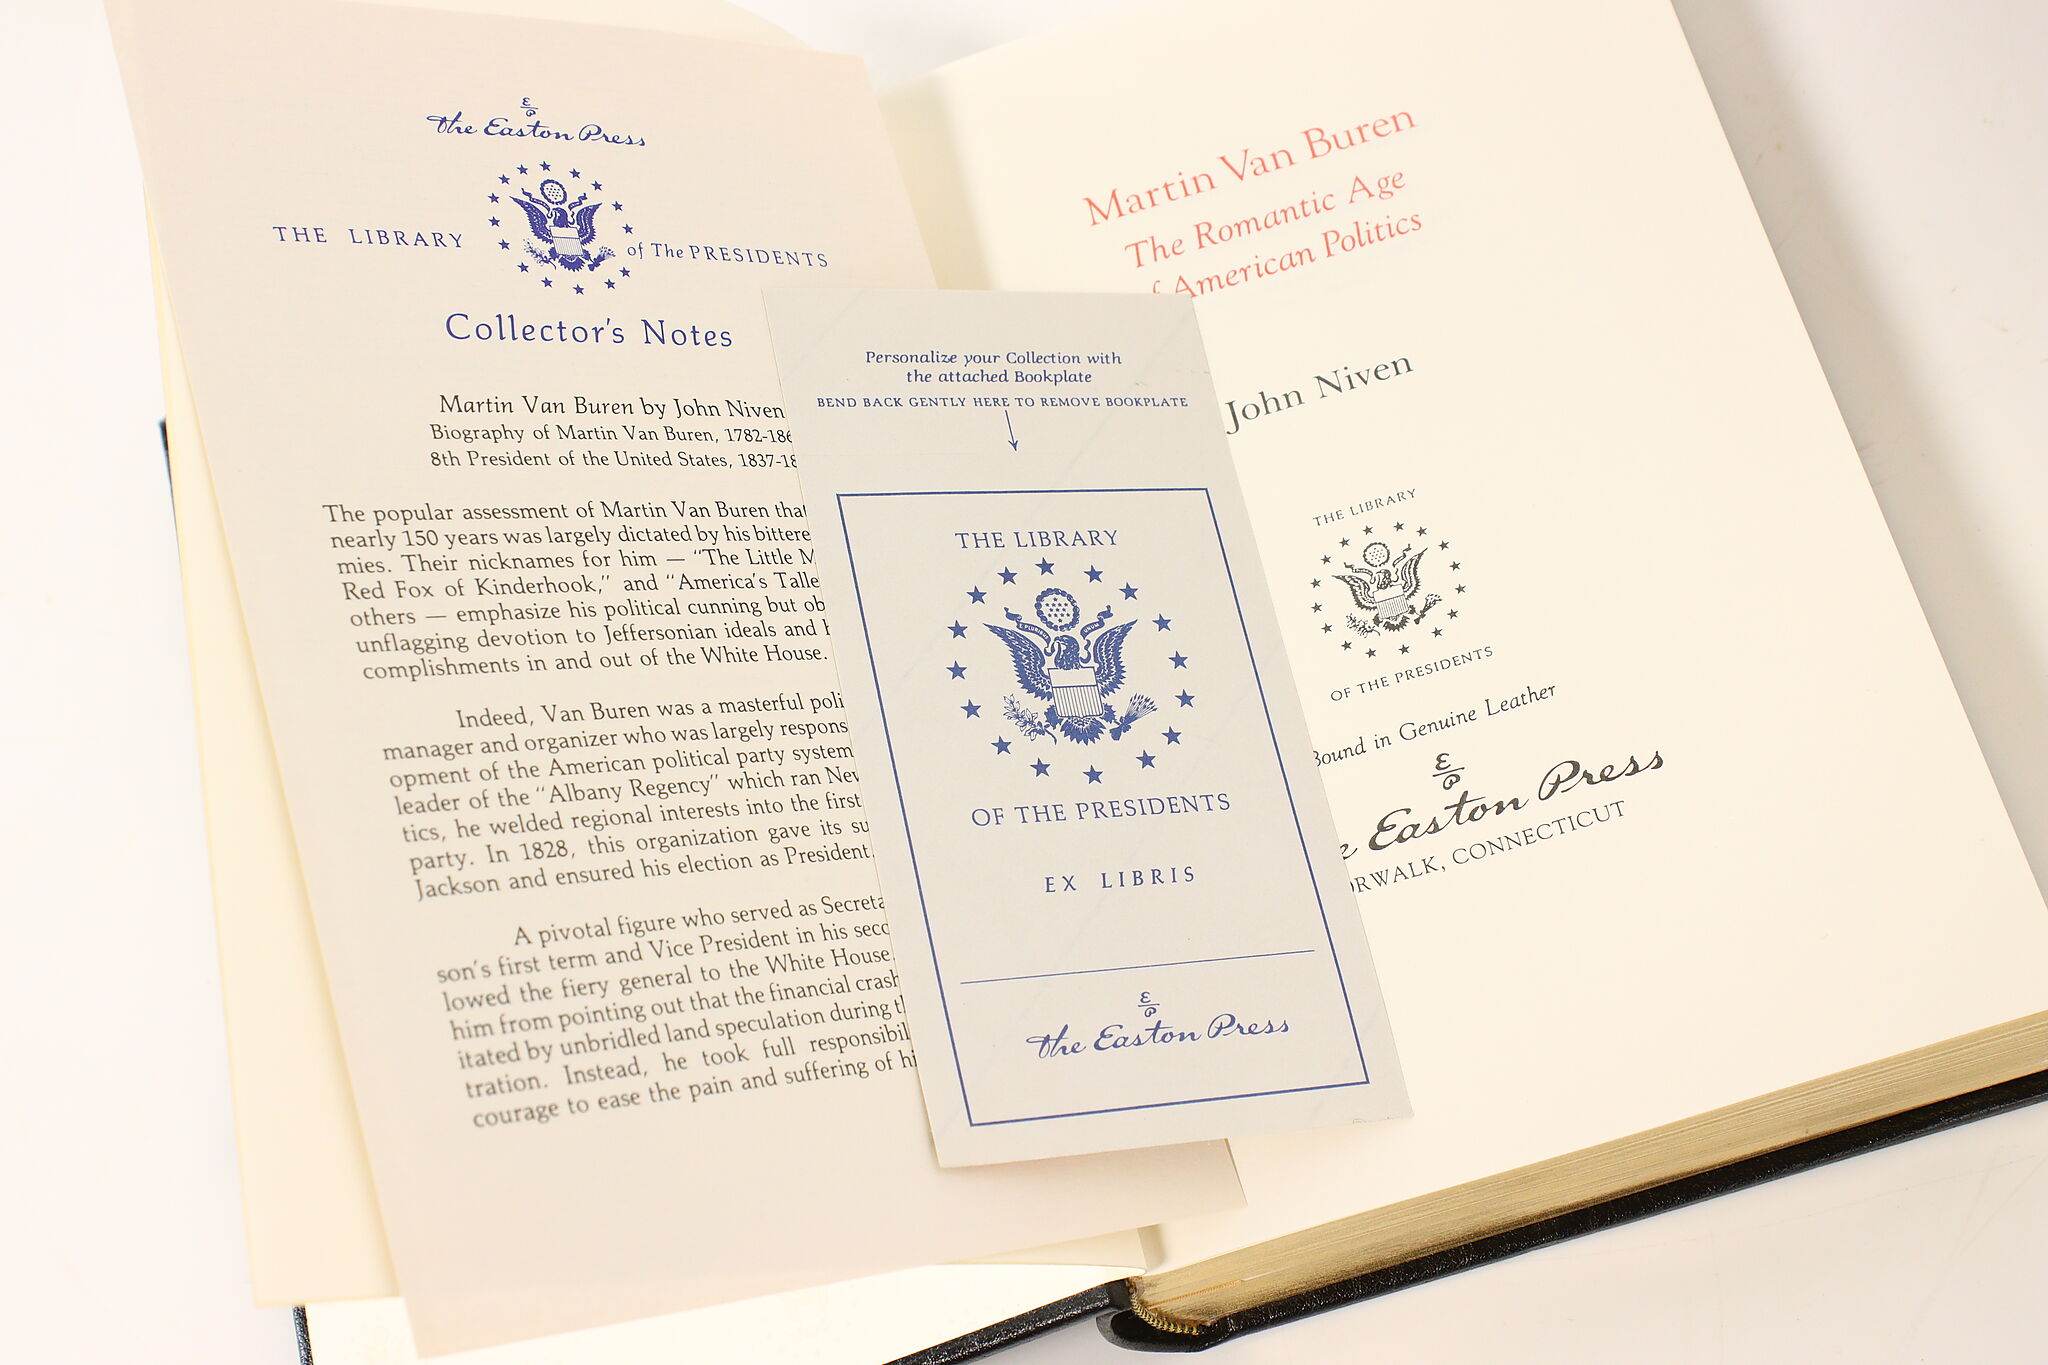 The Easton Press
THE LIBRARY of The PRESIDENTS
Collector's Notes
Martin Van Buren by John Niven
Biography of Martin Van Buren, 1782-186
8th President of the United States, 1837-18
The popular assessment of Martin Van Buren that
nearly 150 years was largely dictated by his bittere
mies. Their nicknames for him — "The Little M
Red Fox of Kinderhook," and "America's Talle
others — emphasize his political cunning but ob
unflagging devotion to Jeffersonian ideals and
complishments in and out of the White House.
Indeed, Van Buren was a masterful poli
manager and organizer who was largely respons
opment of the American political party system
leader of the "Albany Regency" which ran New
tics, he welded regional interests into the first
party. In 1828, this organization gave its su
Jackson and ensured his election as President.
A pivotal figure who served as Secreta
son's first term and Vice President in his seco
lowed the fiery general to the White House.
him from pointing out that the financial crash
itated by unbridled land speculation during t
tration. Instead, he took full responsibil
courage to ease the pain and suffering of hi
Personalize your Collection with
the attached Bookplate
BEND BACK GENTLY HERE TO REMOVE BOOKPLATE
THE LIBRARY
E PLURIBUS UNUM
OF THE PRESIDENTS
EX LIBRIS
The Easton Press
Martin Van Buren
The Romantic Age
of American Politics
John Niven
THE LIBRARY
OF THE PRESIDENTS
Bound in Genuine Leather
e Easton Press
ORWALK, CONNECTICUT